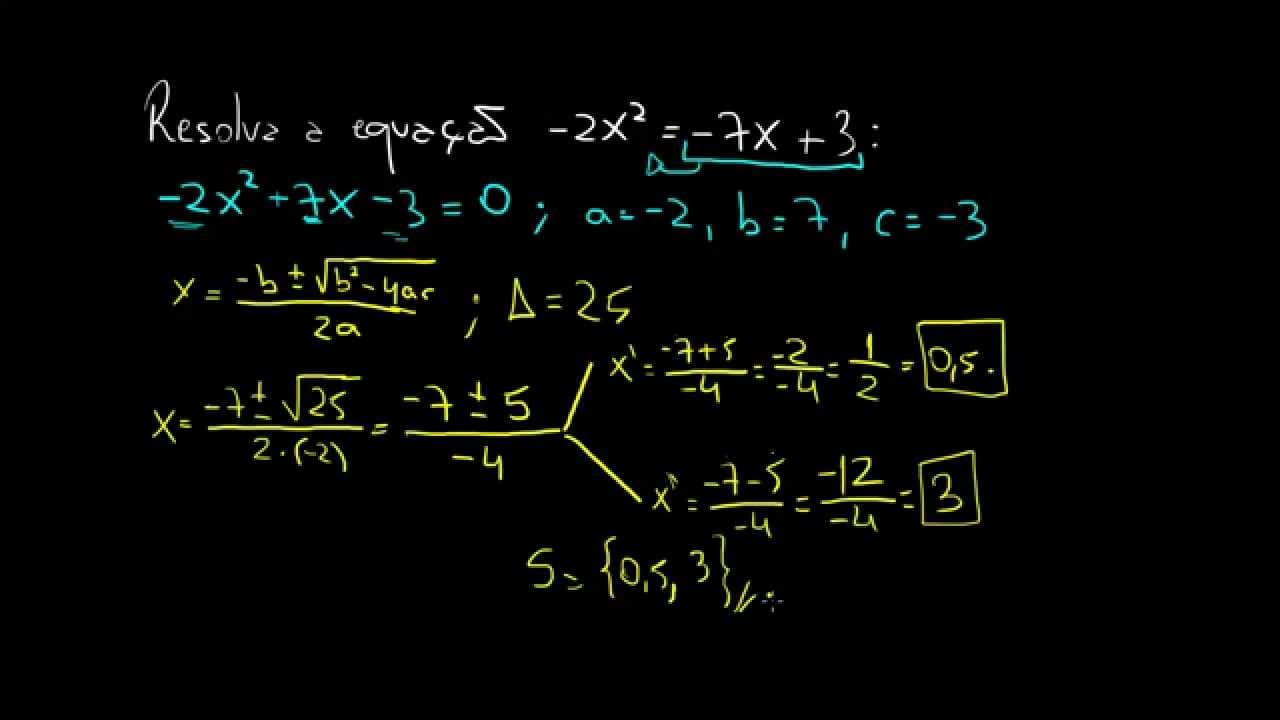 Resolva a equação -2x² = -7x + 3:
-2x² + 7x - 3 = 0 ; a = -2, b = 7, c = -3
x = (-b ± √(b² - 4ac))/(2a) ; Δ = 25
x = (-7 ± √25)/(2·(-2)) = (-7 ± 5)/(-4)
x' = (-7+5)/(-4) = (-2)/(-4) = 1/2 = 0,5.
x'' = (-7-5)/(-4) = (-12)/(-4) = 3
S = {0,5, 3}//.